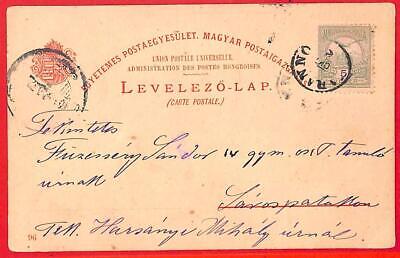 EGYETEMES POSTAEGYESÜLET. MAGYAR POSTAIGAZG
UNION POSTALE UNIVERSELLE.
ADMINISTRATION DES POSTES HONGROISES.
LEVELEZŐ-LAP.
(CARTE POSTALE.)
Tekintetes
Füzesséry Sándor IV gym. oszt. tanuló
úrnak
Sárospatakon
Tek. Harsányi Mihály úrnál.
96